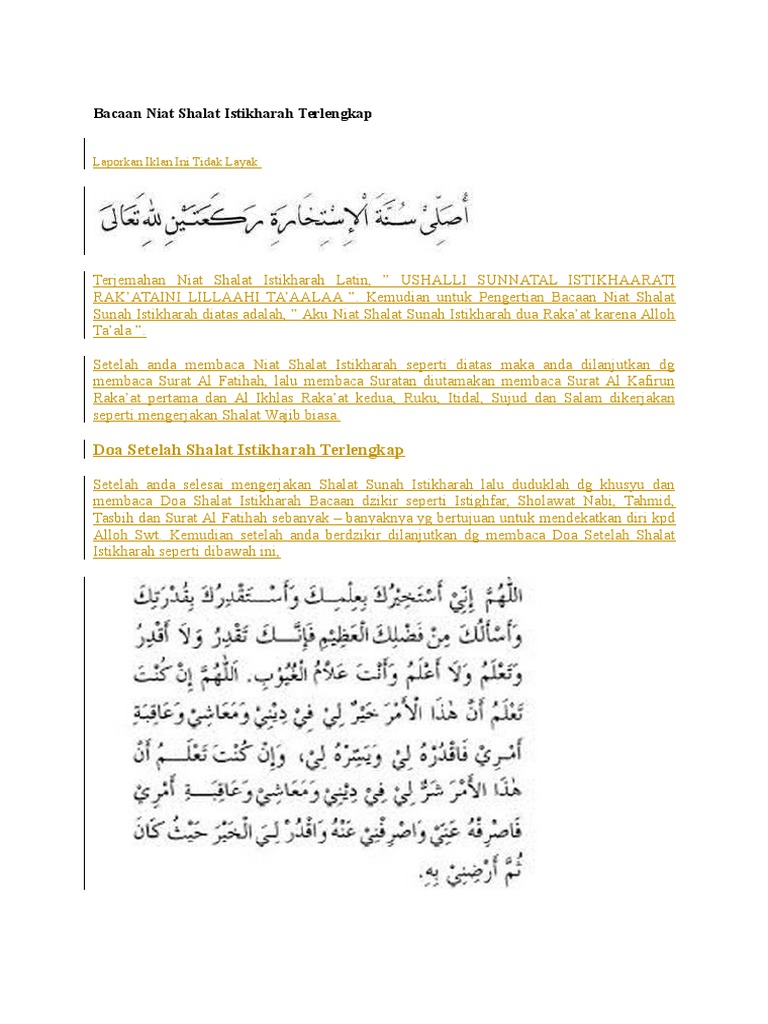 Bacaan Niat Shalat Istikharah Terlengkap
Laporkan Iklan Ini Tidak Layak
أُصَلِّيْ سُنَّةَ اْلإِسْتِخَارَةِ رَكَعَتَيْنِ لِلّٰهِ تَعَالَىَ
Terjemahan Niat Shalat Istikharah Latin, ” USHALLI SUNNATAL ISTIKHAARATI
RAK’ATAINI LILLAAHI TA’AALAA ”. Kemudian untuk Pengertian Bacaan Niat Shalat
Sunah Istikharah diatas adalah, ” Aku Niat Shalat Sunah Istikharah dua Raka’at karena Alloh
Ta’ala ”.
Setelah anda membaca Niat Shalat Istikharah seperti diatas maka anda dilanjutkan dg
membaca Surat Al Fatihah, lalu membaca Suratan diutamakan membaca Surat Al Kafirun
Raka’at pertama dan Al Ikhlas Raka’at kedua, Ruku, Itidal, Sujud dan Salam dikerjakan
seperti mengerjakan Shalat Wajib biasa.
Doa Setelah Shalat Istikharah Terlengkap
Setelah anda selesai mengerjakan Shalat Sunah Istikharah lalu duduklah dg khusyu dan
membaca Doa Shalat Istikharah Bacaan dzikir seperti Istighfar, Sholawat Nabi, Tahmid,
Tasbih dan Surat Al Fatihah sebanyak – banyaknya yg bertujuan untuk mendekatkan diri kpd
Alloh Swt. Kemudian setelah anda berdzikir dilanjutkan dg membaca Doa Setelah Shalat
Istikharah seperti dibawah ini,
اَللّٰهُمَّ إِنِّيْ أَسْتَخِيْرُكَ بِعِلْمِكَ وَأَسْتَقْدِرُكَ بِقُدْرَتِكَ
وَأَسْأَلُكَ مِنْ فَضْلِكَ الْعَظِيْمِ فَإِنَّكَ تَقْدِرُ وَلَا أَقْدِرُ
وَتَعْلَمُ وَلَا أَعْلَمُ وَأَنْتَ عَلَّامُ الْغُيُوْبِ. اَللّٰهُمَّ إِنْ كُنْتَ
تَعْلَمُ أَنَّ هٰذَا الْأَمْرَ خَيْرٌ لِيْ فِيْ دِيْنِيْ وَمَعَاشِيْ وَعَاقِبَةِ
أَمْرِيْ فَاقْدُرْهُ لِيْ وَيَسِّرْهُ لِيْ، وَإِنْ كُنْتَ تَعْلَمُ أَنَّ
هٰذَا الْأَمْرَ شَرٌّ لِيْ فِيْ دِيْنِيْ وَمَعَاشِيْ وَعَاقِبَةِ أَمْرِيْ
فَاصْرِفْهُ عَنِّيْ وَاصْرِفْنِيْ عَنْهُ وَاقْدُرْ لِيَ الْخَيْرَ حَيْثُ كَانَ
ثُمَّ أَرْضِنِيْ بِهِ.